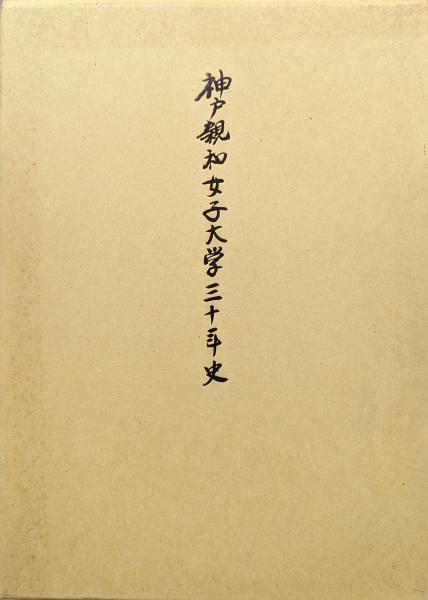 神戸親和女子大学三十年史